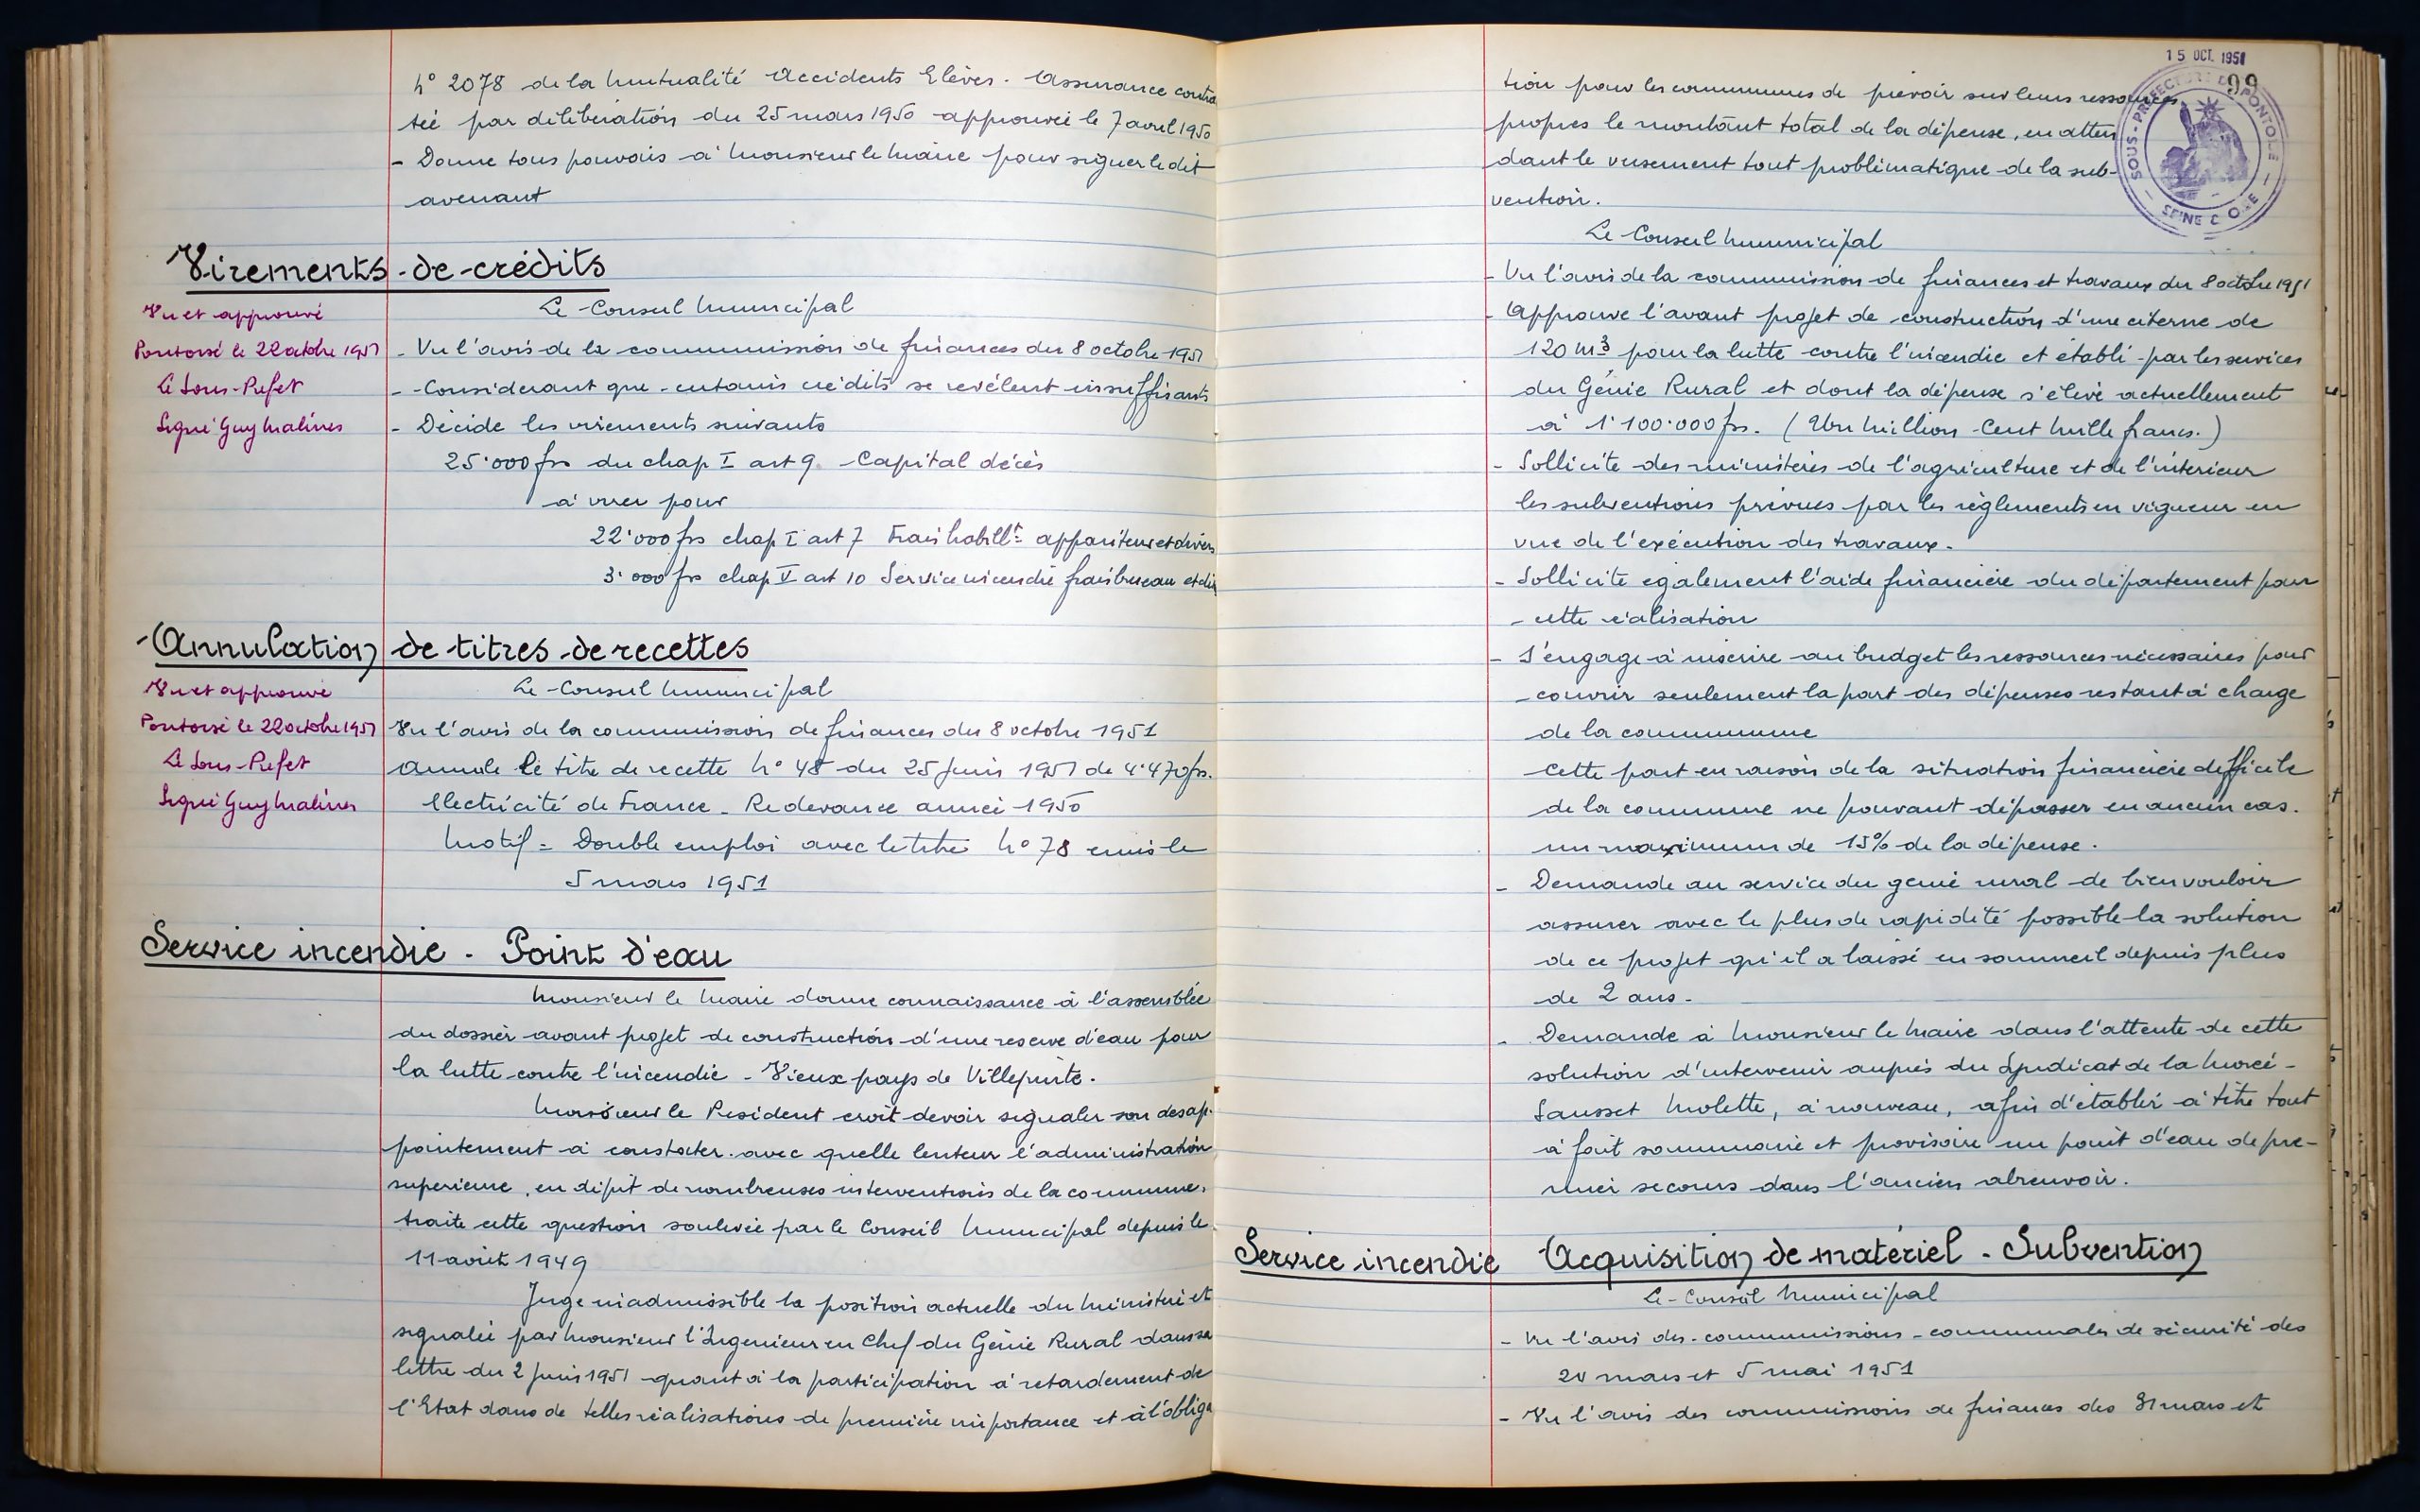 N° 2078 de la Mutualité Accidents Elèves. Assurance contrac
tée par délibération du 25 mars 1950 approuvée le 7 avril 1950
- Donne tous pouvoirs à Monsieur le Maire pour signer le dit
avenant
Virements de crédits
Le Conseil Municipal
Vu et approuvé
Pontoise le 22 octobre 1951
Le Sous-Préfet
Signé Guy Malines
- Vu l'avis de la commission de finances du 8 octobre 1951
- Considérant que certains crédits se revèlent insuffisants
- Décide les virements suivants
25.000 frs du chap I art 9 Capital décès
à virer pour
22.000 frs chap I art 7 Frais habillt appariteur et divers
3.000 frs chap V art 10 Service incendie frais bureau et div
Annulation de titres de recettes
Le Conseil Municipal
Vu et approuvé
Pontoise le 22 octobre 1951
Le Sous-Préfet
Signé Guy Malines
Vu l'avis de la commission de finances du 8 octobre 1951
annule le titre de recette N° 48 du 25 Juin 1951 de 4.470 frs.
Electricité de France - Redevance année 1950
Motif = Double emploi avec le titre N° 78 émis le
5 mars 1951
Service incendie - Point d'eau
Monsieur le Maire donne connaissance à l'assemblée
du dossier avant projet de construction d'une reserve d'eau pour
la lutte contre l'incendie - Vieux pays de Villepinte.
Monsieur le President croit devoir signaler son desap-
pointement à constater avec quelle lenteur l'administration
superieure, en dépit de nombreuses interventions de la commune,
traite cette question soulevée par le Conseil Municipal depuis le
11 août 1949
Juge inadmissible la position actuelle du Ministère et
signalée par Monsieur l'Ingenieur en Chef du Génie Rural dans sa
lettre du 2 Juin 1951 quant à la participation à retardement de
l'Etat dans de telles réalisations de première importance et à l'obliga
15 OCT. 1951
99
SOUS-PREFECTURE DE PONTOISE
SEINE & OISE
tion pour les communes de prévoir sur leurs ressources
propres le montant total de la dépense, en atten
dant le versement tout problématique de la sub-
vention.
Le Conseil Municipal
- Vu l'avis de la commission de finances et travaux du 8 octobre 1951
- Approuve l'avant projet de construction d'une citerne de
120 m3 pour la lutte contre l'incendie et établi par les services
du Génie Rural et dont la dépense s'élève actuellement
à 1.100.000 frs. (Un Million Cent Mille francs.)
- Sollicite des ministères de l'agriculture et de l'interieur
les subventions prévues par les règlements en vigueur en
vue de l'exécution des travaux.
- Sollicite également l'aide financière du département pour
cette réalisation
- S'engage à inscrire au budget les ressources nécessaires pour
couvrir seulement la part des dépenses restant à charge
de la commune
Cette part en raison de la situation financière difficile
de la commune ne pouvant dépasser en aucun cas.
un maximum de 15% de la dépense.
- Demande au service du genie rural de bien vouloir
assurer avec le plus de rapidité possible la solution
de ce projet qu'il a laissé en sommeil depuis plus
de 2 ans.
- Demande à Monsieur le Maire dans l'attente de cette
solution d'intervenir auprès du Syndicat de la Morée -
Sausset Molette, à nouveau, afin d'établir à titre tout
à fait sommaire et provisoire un point d'eau de pre-
mier secours dans l'ancien abreuvoir.
Service incendie Acquisition de matériel - Subvention
Le Conseil Municipal
- Vu l'avis des commissions communales de sécurité des
mars et 5 mai 1951
- Vu l'avis des commissions de finances des 31 mars et